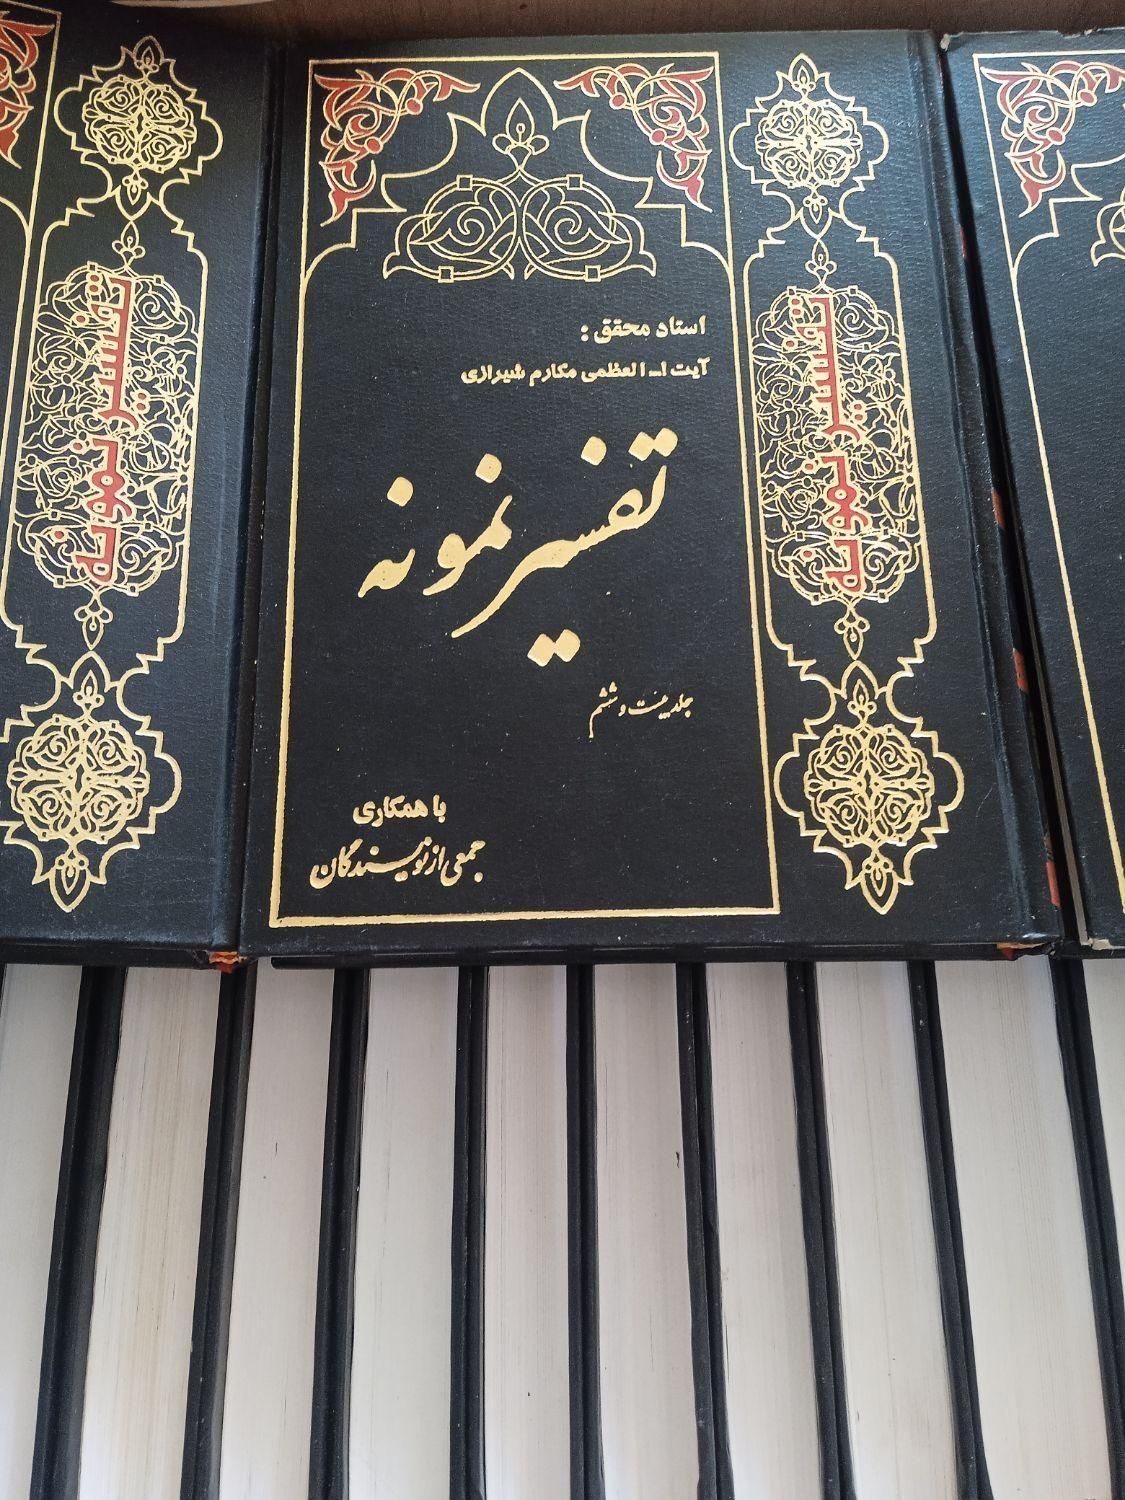 استاد محقق :
آیت ا... العظمی مکارم شیرازی
تفسیر نمونه
جلد بیست و ششم
با همکاری
جمعی از نویسندگان
تفسیر نمونه
تفسیر نمونه